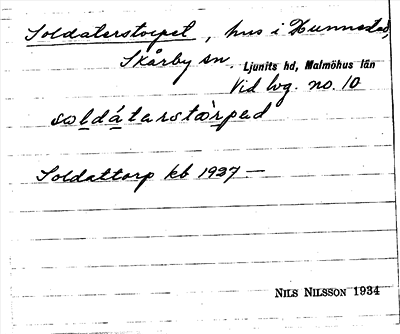 Soldaterstorpet, hus i Hunnestad,
Skårby sn. Ljunits hd, Malmöhus län
Vid lvg. no. 10
soldátarstòrpad
Soldattorp kb 1927 —
NILS NILSSON 1934